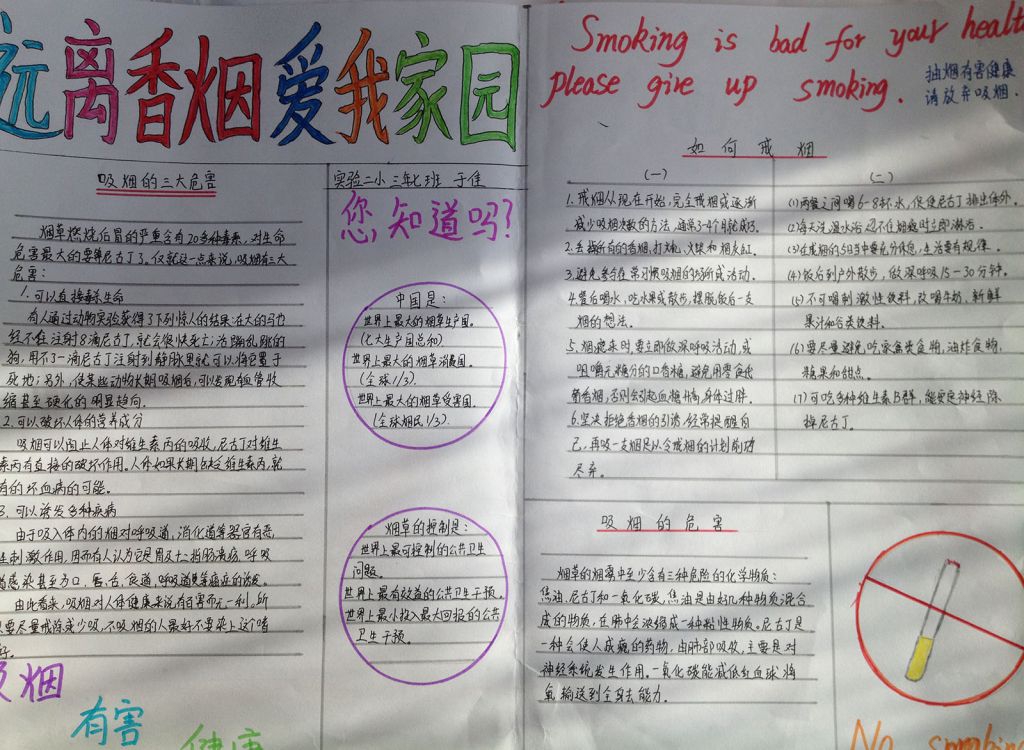 远离香烟爱我家园
吸烟的三大危害
烟草燃烧后冒的严重含有20多种毒素，对生命
危害最大的要算尼古丁了。仅就这一点来说，吸烟有三大
危害：
1.可以直接毒杀生命
有人通过动物实验获得了下列惊人的结果：在大的马也
经不住注射8滴尼古丁，就会很快死亡；活蹦乱跳的
狗，用不了一滴尼古丁注射到静脉里就可以将它置于
死地；另外，使某些动物长期吸烟后，可以发现有血管收
缩甚至硬化的明显趋向。
2.可以破坏人体的营养成分
吸烟可以阻止人体对维生素丙的吸收，尼古丁对维生
素丙有直接的破坏作用。人体如果长期缺乏维生素丙，就
有的坏血病的可能。
3.可以诱发多种疾病
由于吸入体内的烟对呼吸道，消化道等器官有恶
性刺激作用，因而有人认为它是胃及十二指肠溃疡，呼吸
道感染甚至为口、唇、舌、食道，呼吸道等癌症的诱发。
由此看来，吸烟对人体健康来说有百害而无一利，所
要尽量戒除或少吸，不吸烟的人最好不要染上这个嗜
好。
烟
有害
健康
实验二小 三年七班 于佳
您知道吗？
中国是：
世界上最大的烟草生产国。
（七大生产国总和）
世界上最大的烟草消费国。
（全球1/3）.
世界上最大的烟草受害国.
（全球烟民1/3）.
烟草的控制是：
世界上最可控制的公共卫生
问题。
世界上最有效益的公共卫生干预。
世界上最小投入最大回报的公共
卫生干预。
Smoking is bad for your healt
please give up smoking.
抽烟有害健康
请放弃吸烟.
如何戒烟
（一）
1.戒烟从现在开始，完全戒烟或逐渐
减少吸烟次数的方法，通常3-4个月就成功。
2.丢掉所有的香烟、打火机、火柴和烟灰缸。
3.避免参与在常习惯吸烟的场所或活动。
4.餐后喝水，吃水果或散步，摆脱饭后一支
烟的想法。
5.烟瘾来时要立即做深呼吸活动，或
咀嚼无糖分的口香糖，避免用零食代
替香烟，否则会引起血糖升高，身体过胖。
6.坚决拒绝香烟的引诱，经常提醒自
己，再吸一支烟足以令戒烟的计划前功
尽弃。
（二）
(1)两餐之间喝6-8杯水，促使尼古丁排出体外。
(2)每天洗温水浴，忍不住烟瘾时立即淋浴。
(3)在戒烟的5日当中要充分休息，生活要有规律。
(4)饭后到户外散步，做深呼吸15-30分钟。
(5)不可喝刺激性饮料，改喝牛奶、新鲜
果汁和谷类饮料。
(6)要尽量避免吃家禽类食物，油炸食物，
糖果和甜点。
(7)可吃多种维生素B群，能安定神经除
掉尼古丁。
吸烟的危害
烟草的烟雾中至少含有三种危险的化学物质：
焦油，尼古丁和一氧化碳，焦油是由好几种物质混合
成的物质，在肺中会浓缩成一种粘性物质。尼古丁是
一种会使人成瘾的药物，由肺部吸收，主要是对
神经系统发生作用。一氧化碳能减低红血球将
氧输送到全身去能力。
No smoking